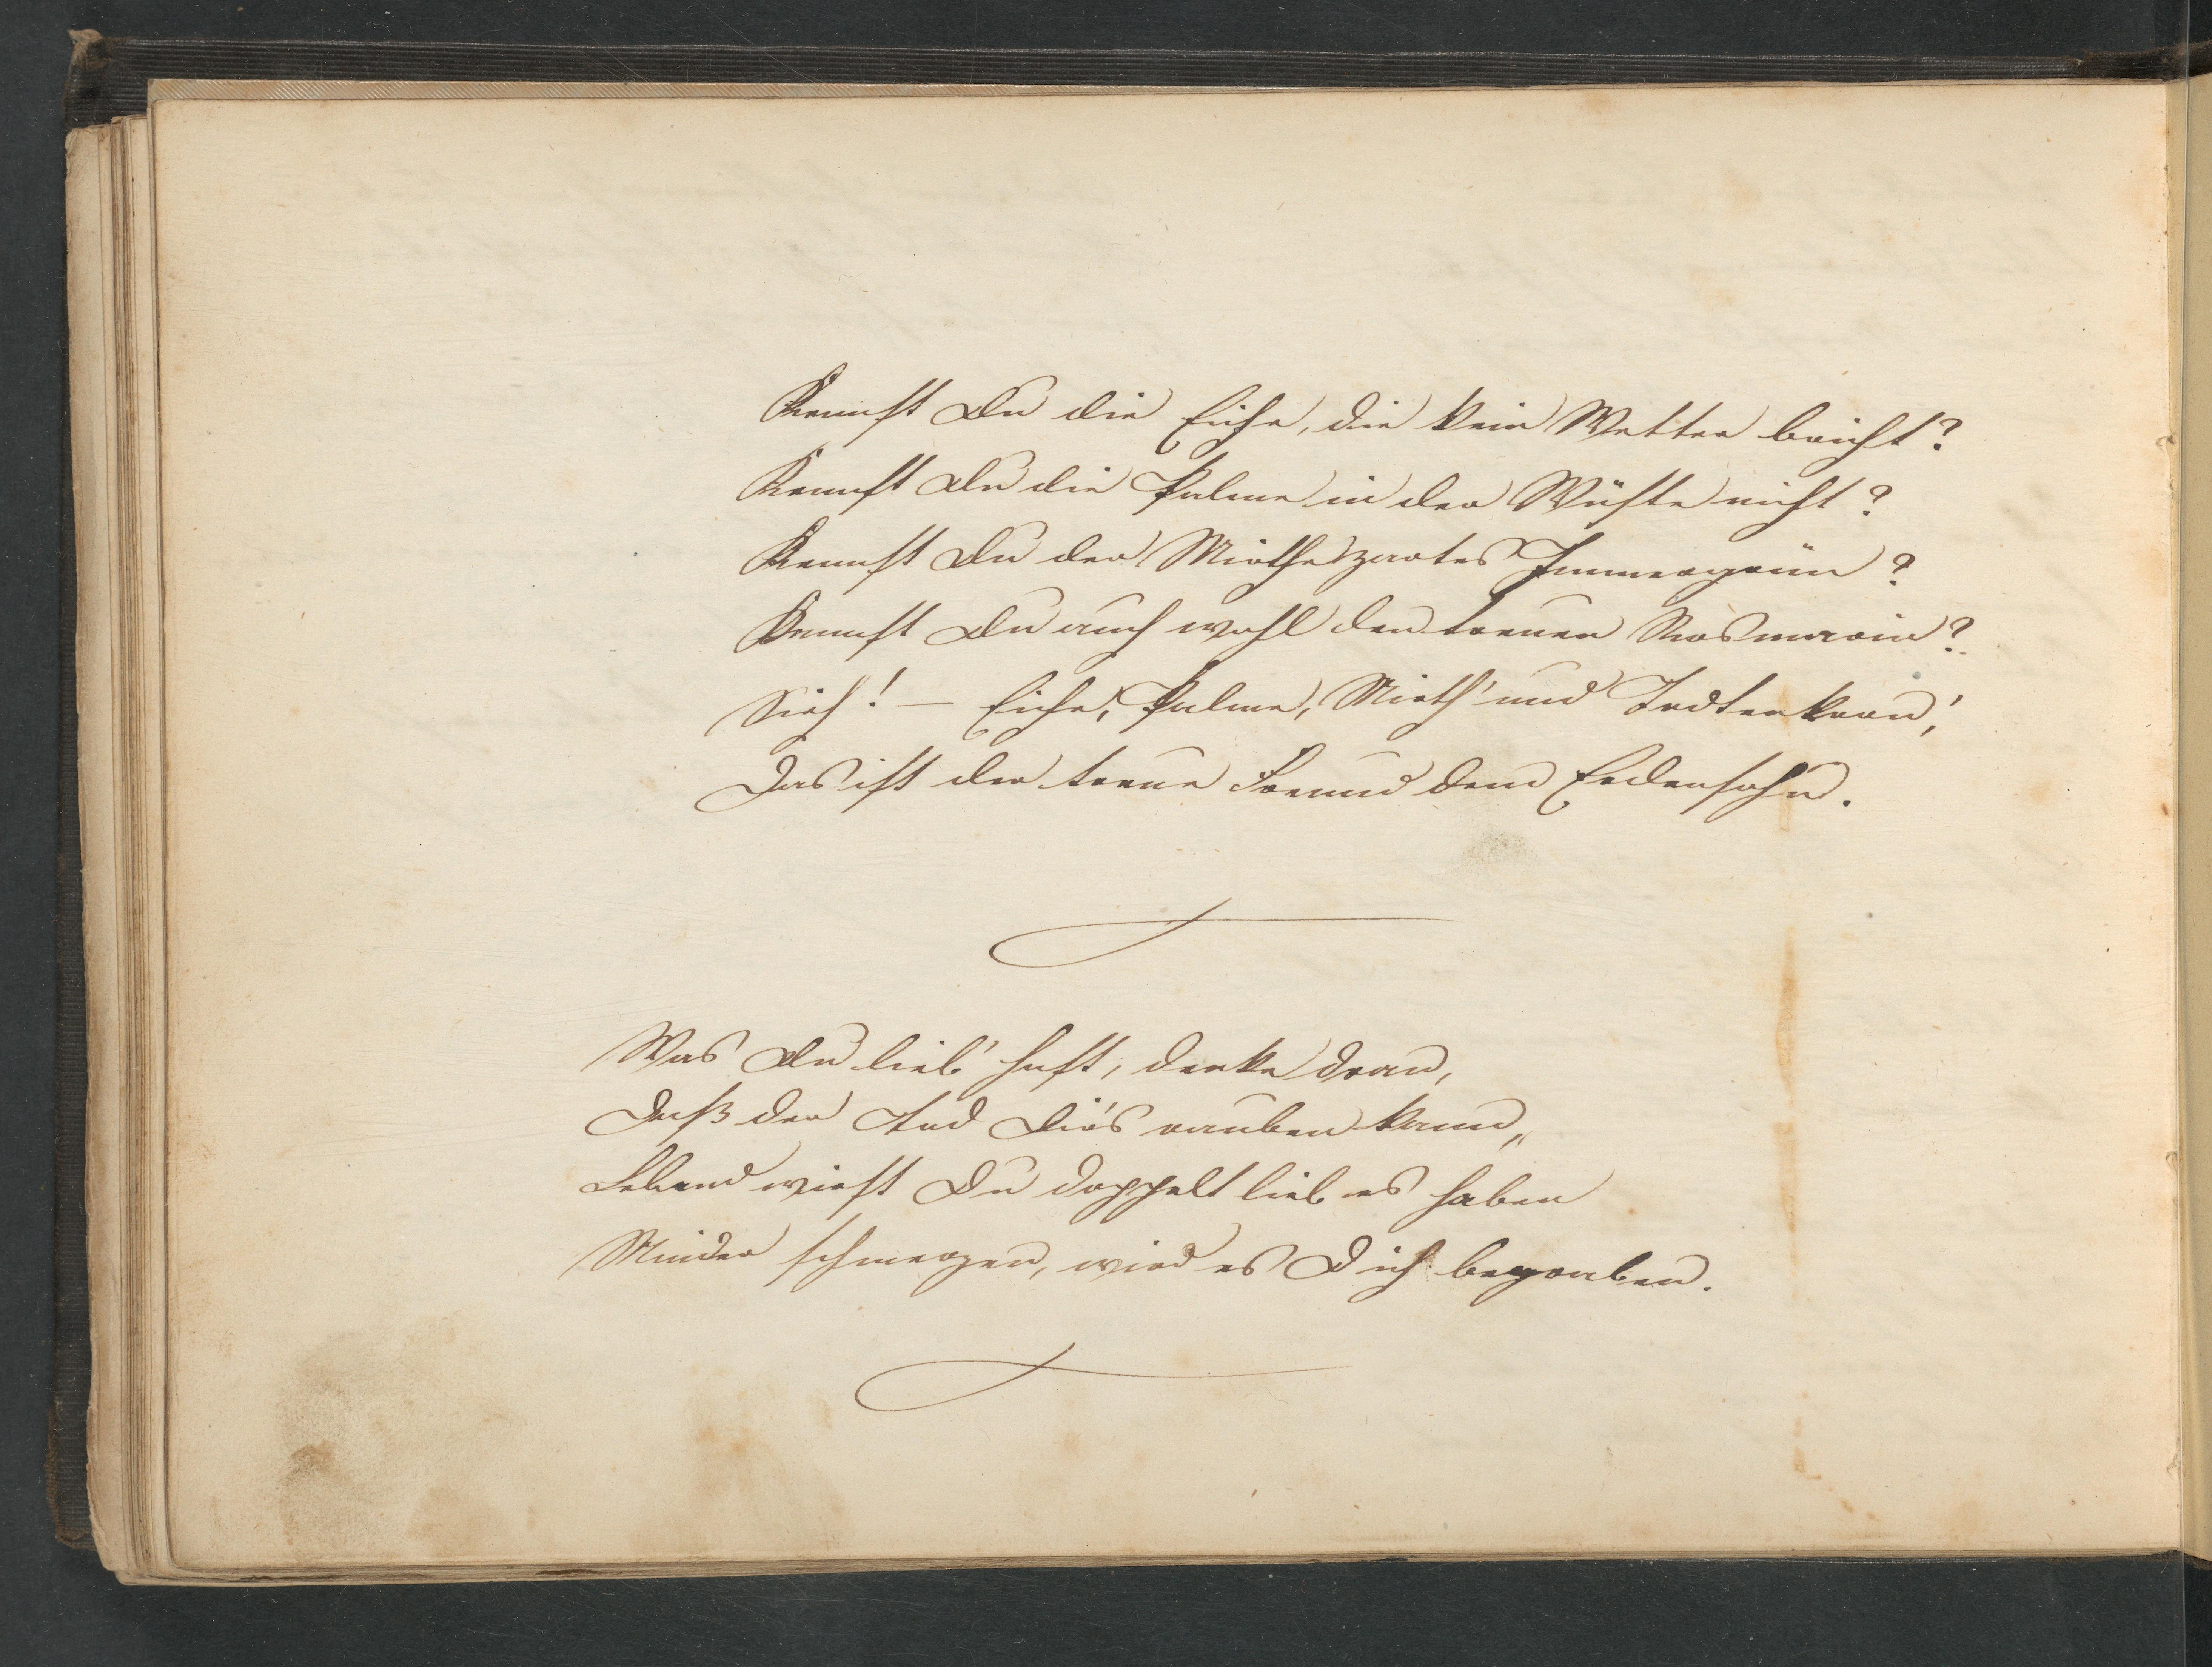 Kennst Du die Eiche, die kein Wetter bricht?
Kennst Du die Palme in der Wüste nicht?
Kennst Du der Mirthe zartes Immergrün?
Kennst Du auch wohl den treuen Rosmarin?
Sieh! — Eiche, Palme, Mirth' und Todtenkron',
Das ist der treue Freund dem Erdensohn.
Was Du lieb' hast, denke dran,
Daß der Tod Dir's rauben kann,
Lebend wirst Du doppelt lieb es haben
Minder schmerzen, wird es Dich begraben.